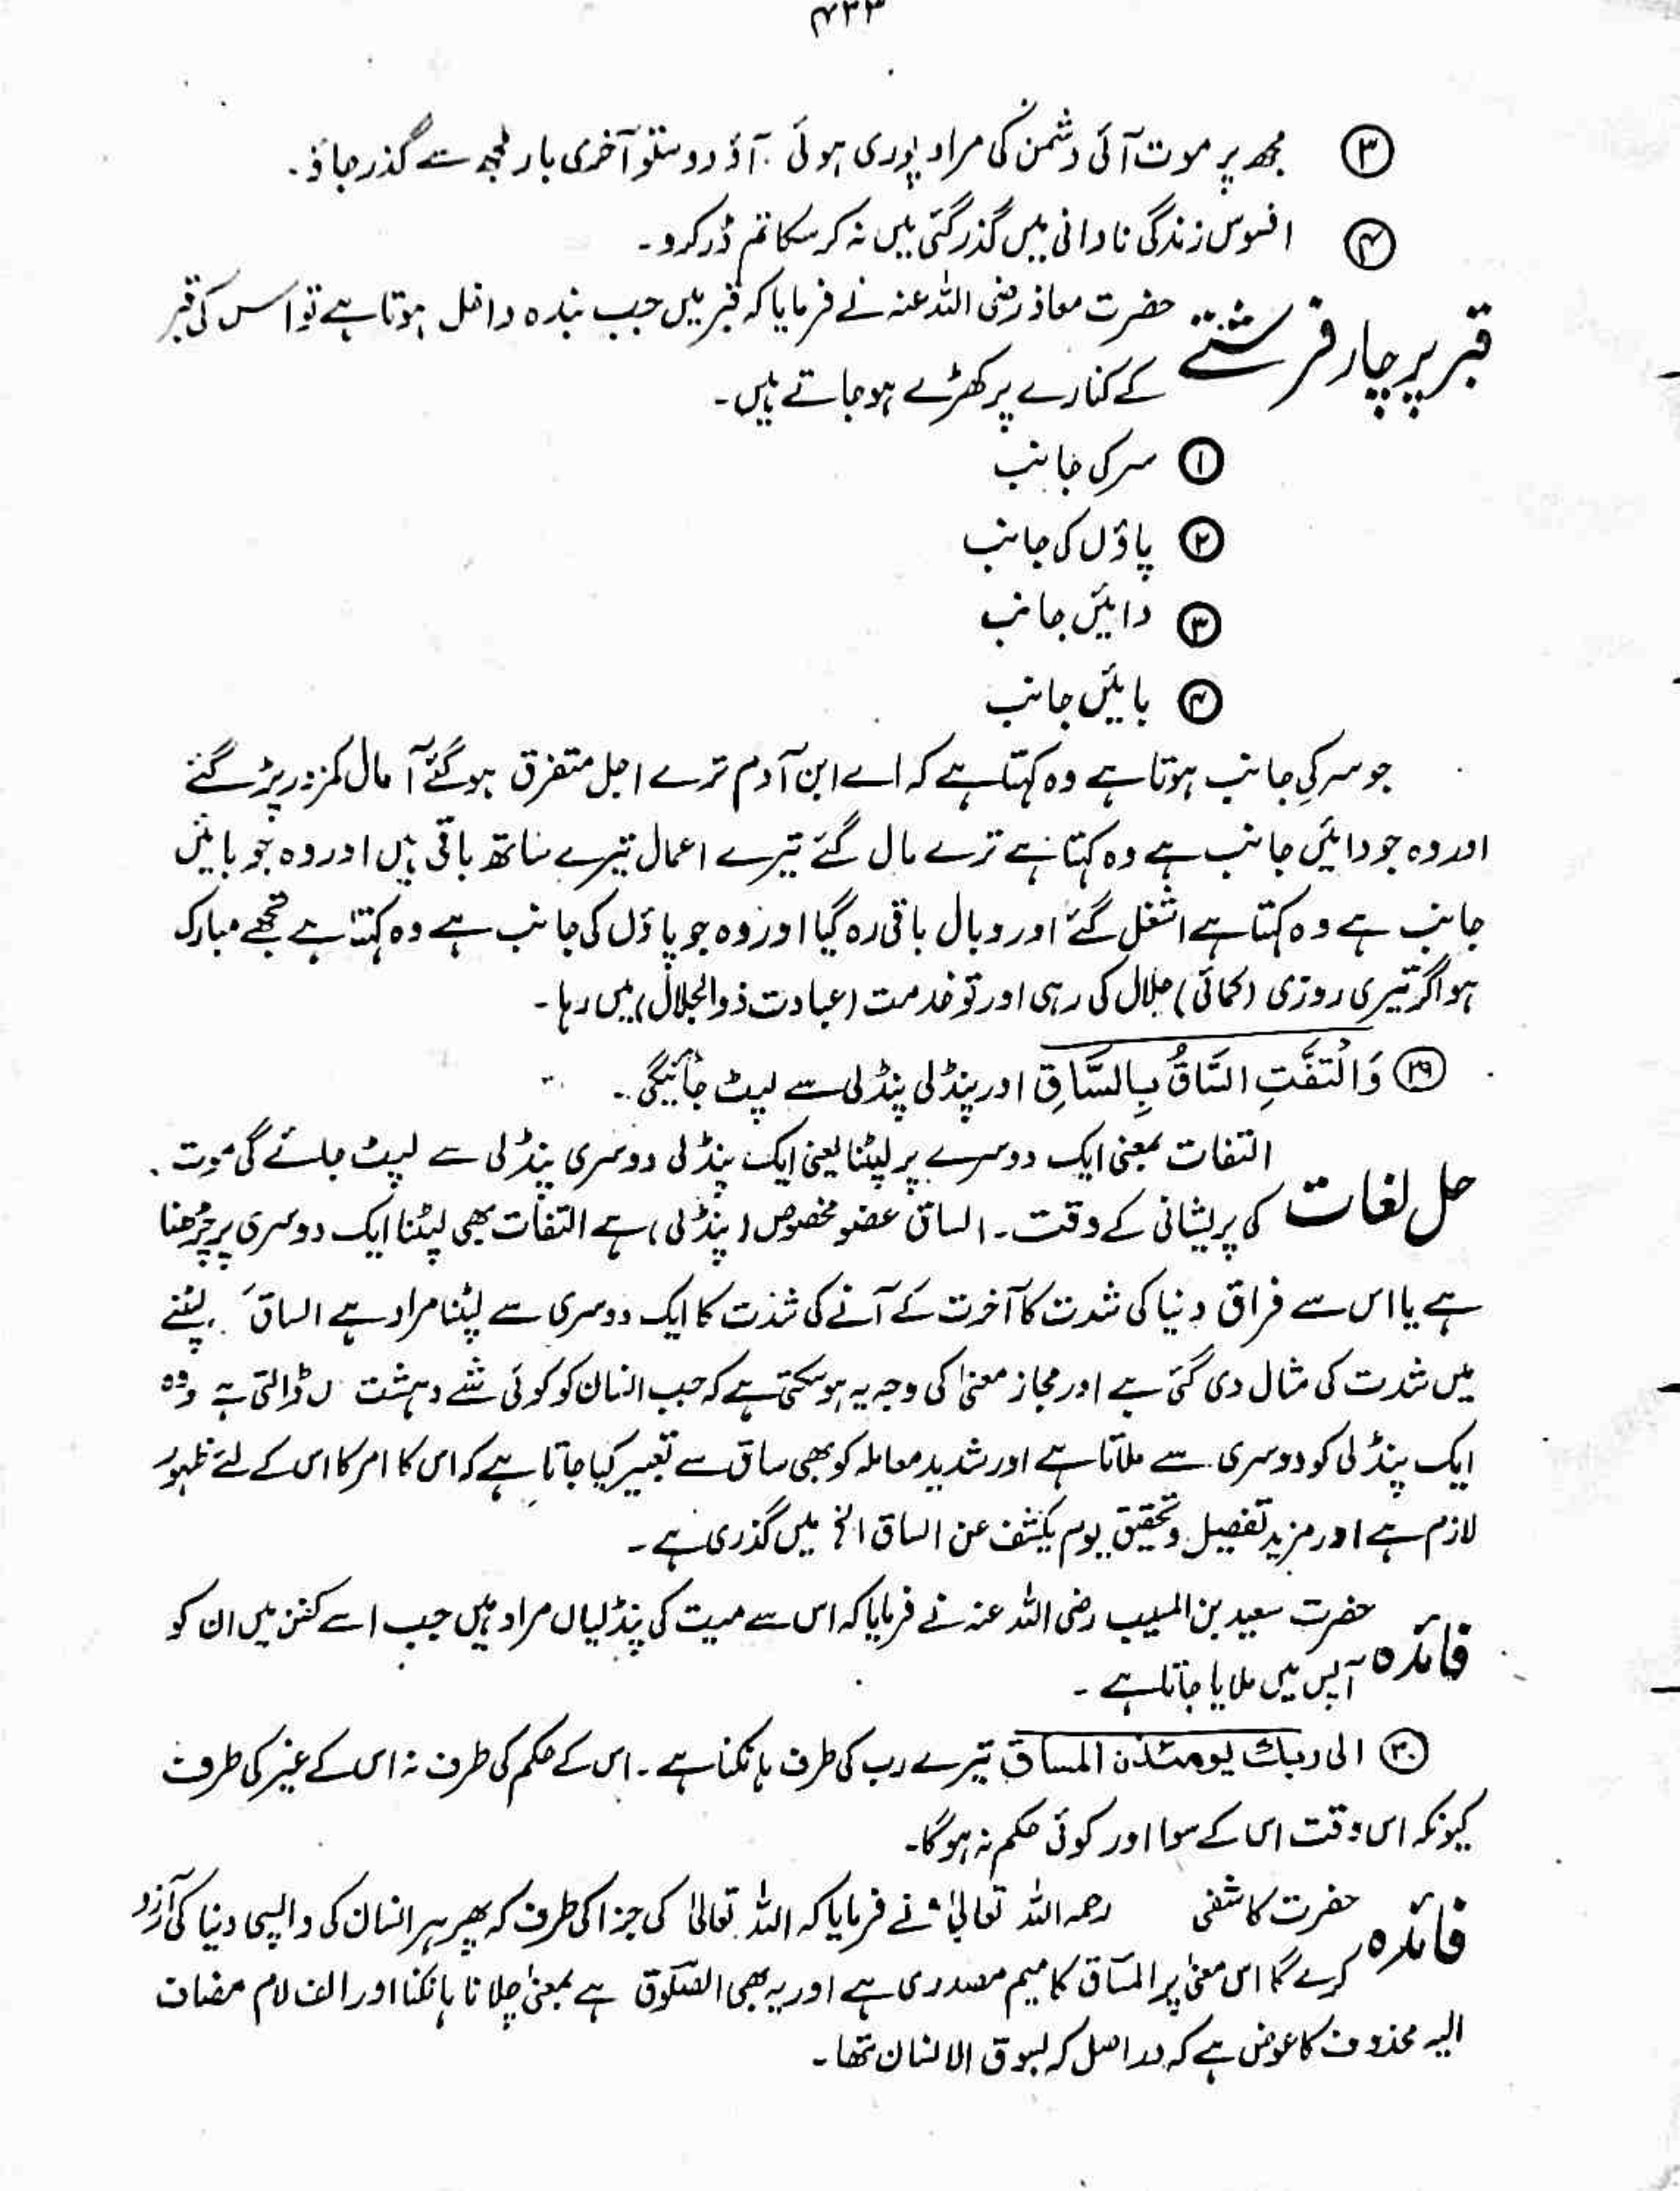 ۴۳۳
③ مجھ پر موت آئی دشمن کی مراد پوری ہوئی ۔ آؤ دوستو آخری بار مجھ سے گذر جاؤ۔
④ افسوس زندگی نادانی میں گذر گئی میں نہ کر سکا تم ڈر کرو۔
قبر پر چار فرشتے
حضرت معاذ رضی اللہ عنہ نے فرمایا کہ قبر میں جب بندہ داخل ہوتا ہے تو اس کی قبر
کے کنارے پر کھڑے ہو جاتے ہیں۔
① سر کی جانب
② پاؤں کی جانب
③ دائیں جانب
④ بائیں جانب
جو سر کی جانب ہوتا ہے وہ کہتا ہے کہ اے ابن آدم ترے اجل متفرق ہو گئے آمال کمزور پڑ گئے
اور وہ جو دائیں جانب ہے وہ کہتا ہے ترے مال گئے تیرے اعمال تیرے ساتھ باقی ہیں اور وہ جو بائیں
جانب ہے وہ کہتا ہے اشغل گئے اور وبال باقی رہ گیا اور وہ جو پاؤں کی جانب ہے وہ کہتا ہے تجھے مبارک
ہو اگر تیری روزی (کمائی) حلال کی رہی اور تو خدمت (عبادت ذوالجلال) میں رہا۔
㉙ وَالْتَفَّتِ السَّاقُ بِالسَّاقِ اور پنڈلی پنڈلی سے لپٹ جائیگی۔
حل لغات
التفات بمعنی ایک دوسرے پر لپٹنا یعنی ایک پنڈلی دوسری پنڈلی سے لپٹ جائے گی موت
کی پریشانی کے وقت۔ الساق عضو مخصوص (پنڈلی) ہے التفات بھی لپٹنا ایک دوسری پر چڑھنا
ہے یا اس سے فراق دنیا کی شدت کا آخرت کے آنے کی شدت کا ایک دوسری سے لپٹنا مراد ہے الساق لپٹنے
میں شدت کی مثال دی گئی ہے اور مجاز معنیٰ کی وجہ یہ ہو سکتی ہے کہ جب انسان کو کوئی شے دہشت ڈالتی ہے وہ
ایک پنڈلی کو دوسری سے ملاتا ہے اور شدید معاملہ کو بھی ساق سے تعبیر کیا جاتا ہے کہ اس کا امر کا اس کے لئے ظہور
لازم ہے اور مزید تفصیل و تحقیق یوم یکشف عن الساق الخ میں گذری ہے۔
فائدہ
حضرت سعید بن المسیب رضی اللہ عنہ نے فرمایا کہ اس سے میت کی پنڈلیاں مراد ہیں جب اسے کفن میں ان کو
آپس میں ملایا جاتا ہے۔
㉚ الی ربک یومئذن المساق تیرے رب کی طرف ہانکنا ہے۔ اس کے حکم کی طرف نہ اس کے غیر کی طرف
کیونکہ اس وقت اس کے سوا اور کوئی حکم نہ ہوگا۔
فائدہ
حضرت کاشفی رحمہ اللہ تعالیٰ نے فرمایا کہ اللہ تعالیٰ کی جزا کی طرف کہ پھر ہر انسان کی واپسی دنیا کی آرزو
کرے گا اس معنیٰ پر المساق کا میم مصدری ہے اور یہ بھی السّوق ہے بمعنیٰ چلانا ہانکنا اور الف لام مضاف
الیہ محذوف کا عوض ہے کہ دراصل کہ لسوق الانسان تھا۔